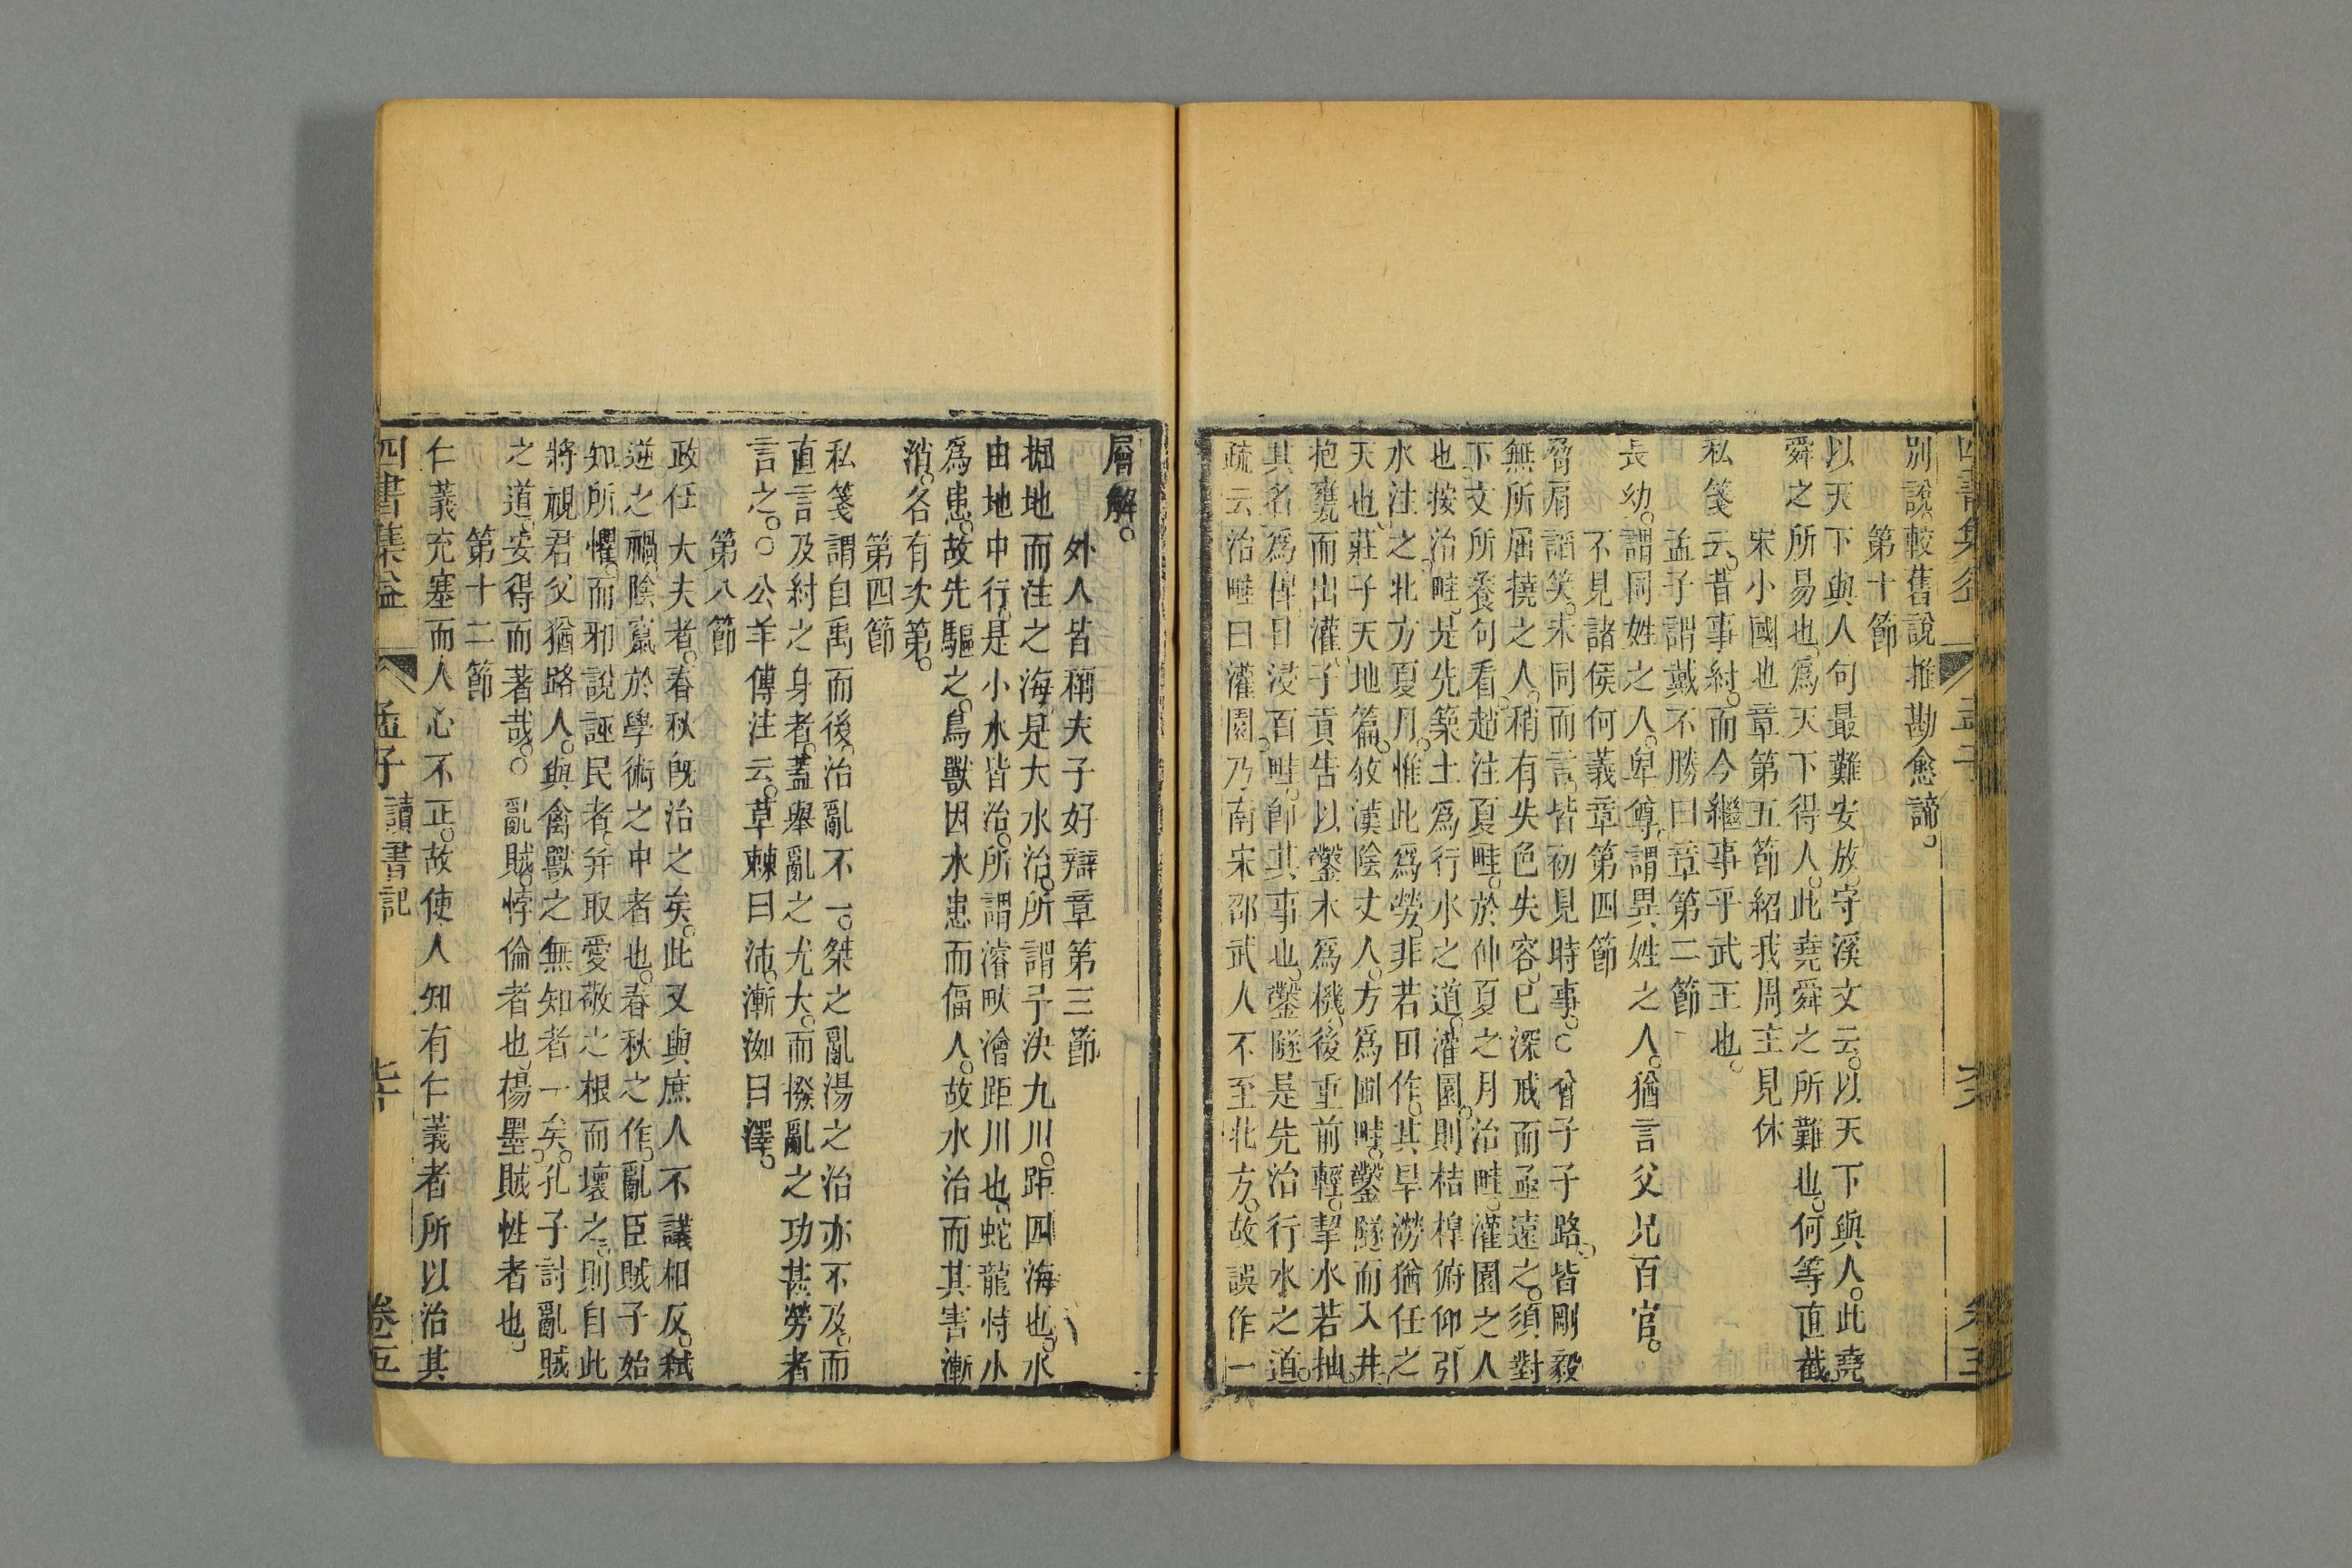 別說。較舊說推勘愈諦。
第十節
以天下與人句最難安放。守溪文云。以天下與人。此堯
舜之所易也。爲天下得人。此堯舜之所難也。何等直截。
宋小國也章第五節紹我周王見休
私箋云。昔事紂。而今繼事乎武王也。
孟子謂戴不勝曰章第二節
長幼。謂同姓之人。卑尊。謂異姓之人。猶言父兄百官。
不見諸侯何義章第四節
脅肩諂笑。未同而言。皆初見時事。○曾子子路。皆剛毅
無所屈撓之人。稍有失色失容。已深戒而亟遠之。須對
下文所養句看。趙注夏畦。於仲夏之月治畦。灌園之人
也。按治畦。是先築土爲行水之道。灌園。則桔橰俯仰。引
水注之。北方夏月。惟此爲勞。非若田作。其旱澇猶任之
天也。莊子天地篇。敘漢陰丈人。方爲圃畦。鑿隧而入井。
抱甕而出灌。子貢告以鑿木爲機。後重前輕。挈水若抽。
其名爲槔。日浸百畦。卽其事也。鑿隧是先治行水之道。
疏云治畦曰灌園。乃南宋邵武人不至北方。故誤作一
四書集益
孟子
卷五
層解。
外人皆稱夫子好辯章第三節
掘地而注之海。是大水治。所謂予決九川。距四海也。水
由地中行。是小水皆治。所謂濬畎澮距川也。蛇龍恃水
爲患。故先驅之。鳥獸因水患而偪人。故水治而其害漸
消。各有次第。
第四節
私箋謂自禹而後。治亂不一。桀之亂湯之治亦不及。而
直言及紂之身者。蓋舉亂之尤大。而撥亂之功甚勞者
言之。○公羊傳注云。草棘曰沛。漸洳曰澤。
第八節
政在大夫者。春秋旣治之矣。此又與庶人不議相反。弒
逆之禍。陰竄於學術之中者也。春秋之作。亂臣賊子始
知所懼。而邪說誣民者。幷取愛敬之根而壞之。則自此
將視君父猶路人。與禽獸之無知者一矣。孔子討亂賊
之道。安得而著哉。○亂賊。悖倫者也。楊墨賊性者也。
第十二節
仁義充塞而人心不正。故使人知有仁義者所以治其
四書集益
孟子
讀書記
七十
卷五